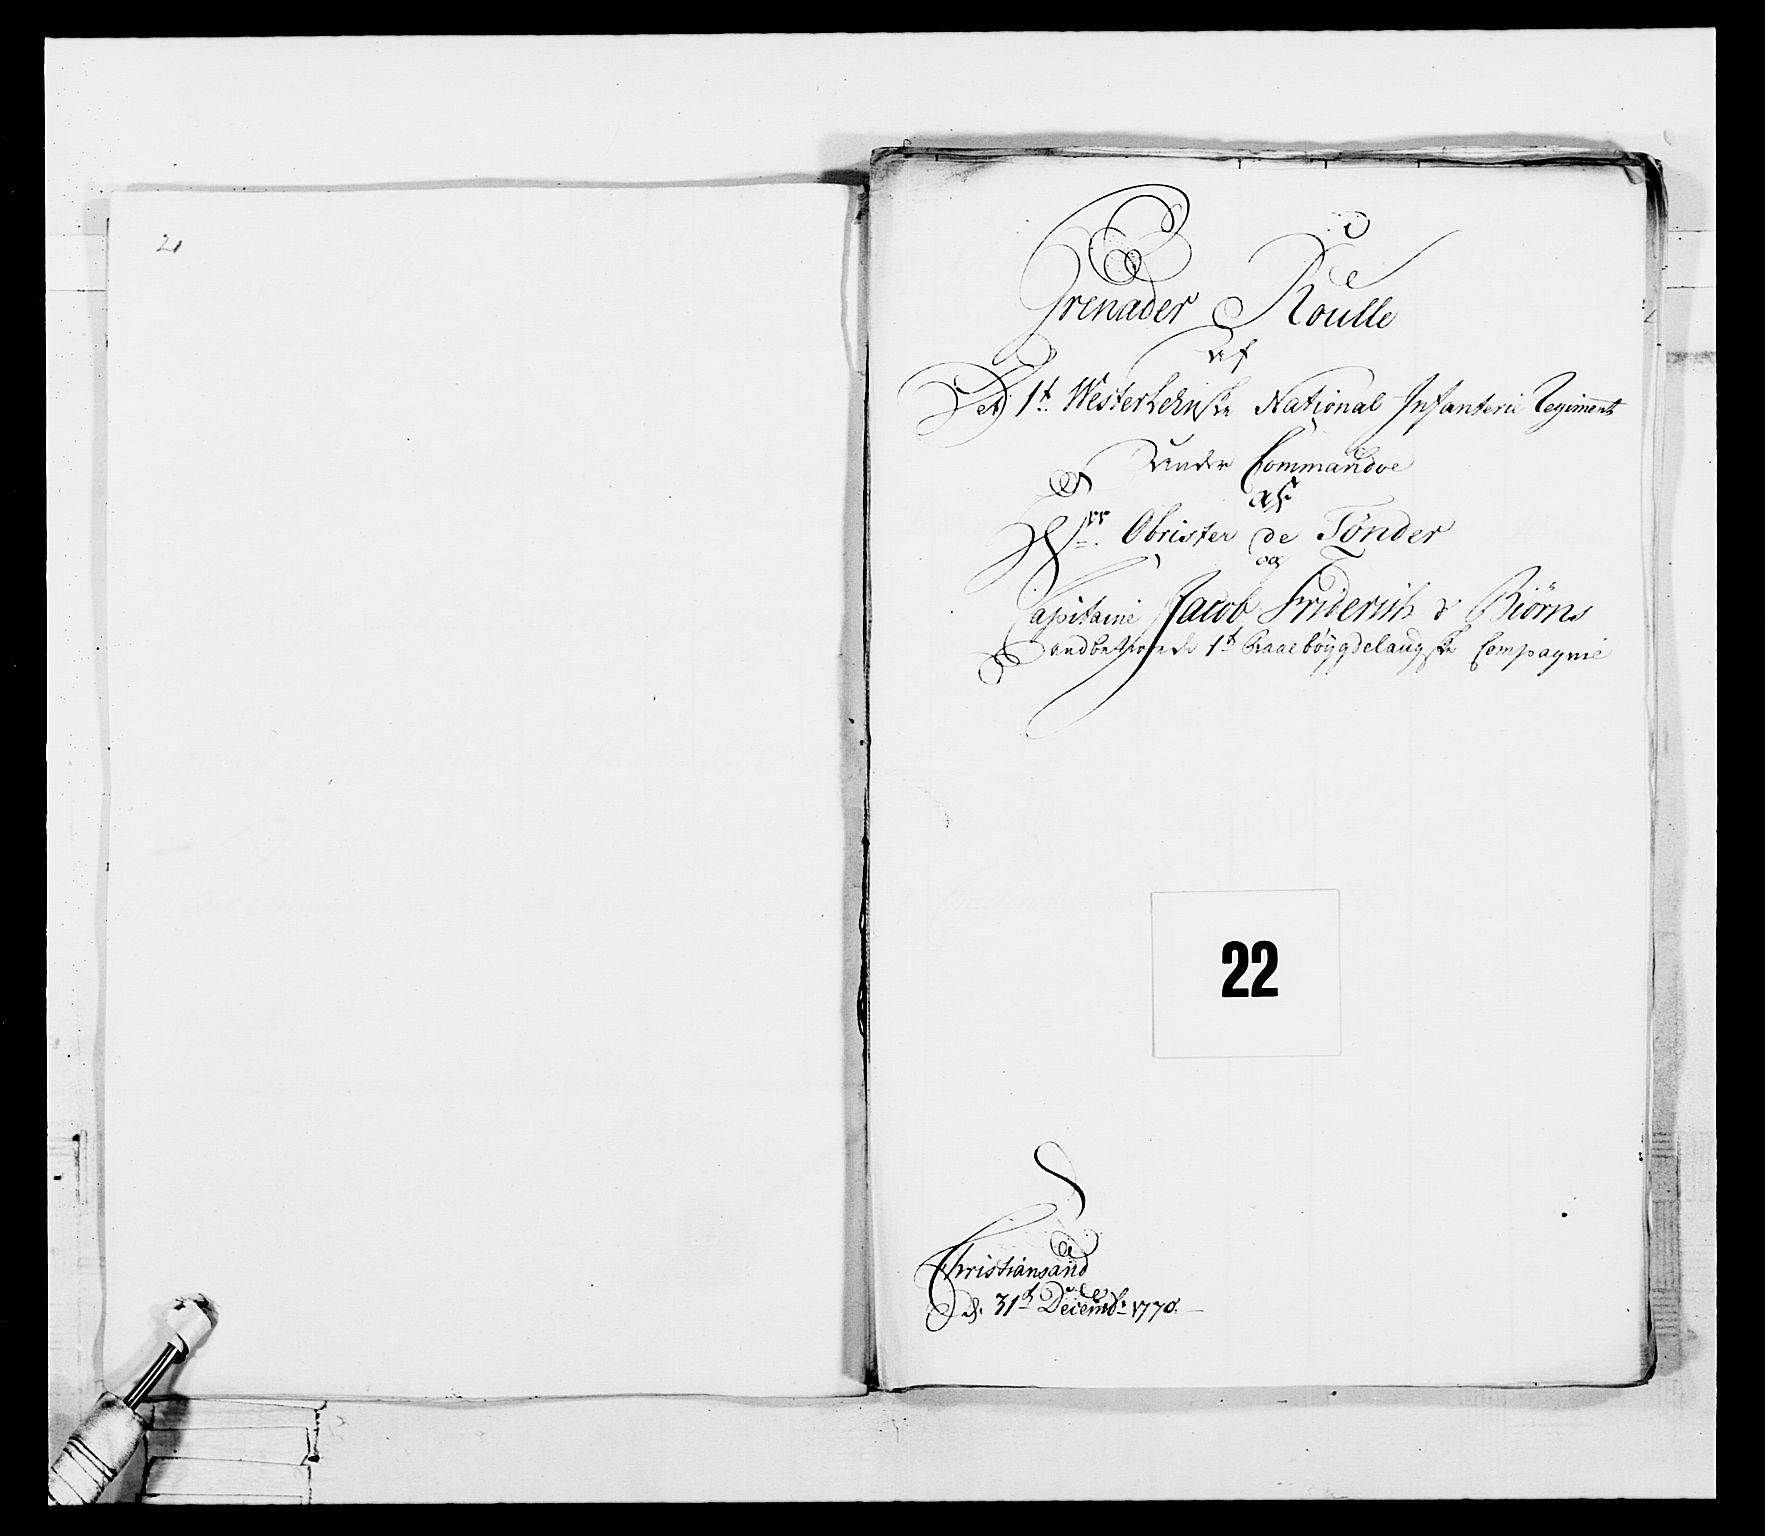 21
Grenader Roulle
af
Det 1t. Westerlehnske National Infanterie Regiments
under Commandoe
af
Hrr. Obrister de Tønder
og
Capitaine Jacob Friderich d Biörns
andbetroede 1t. Raaebøygdelaugske Compagnie
22
Christiansand
d. 31t. Decembr. 1770.